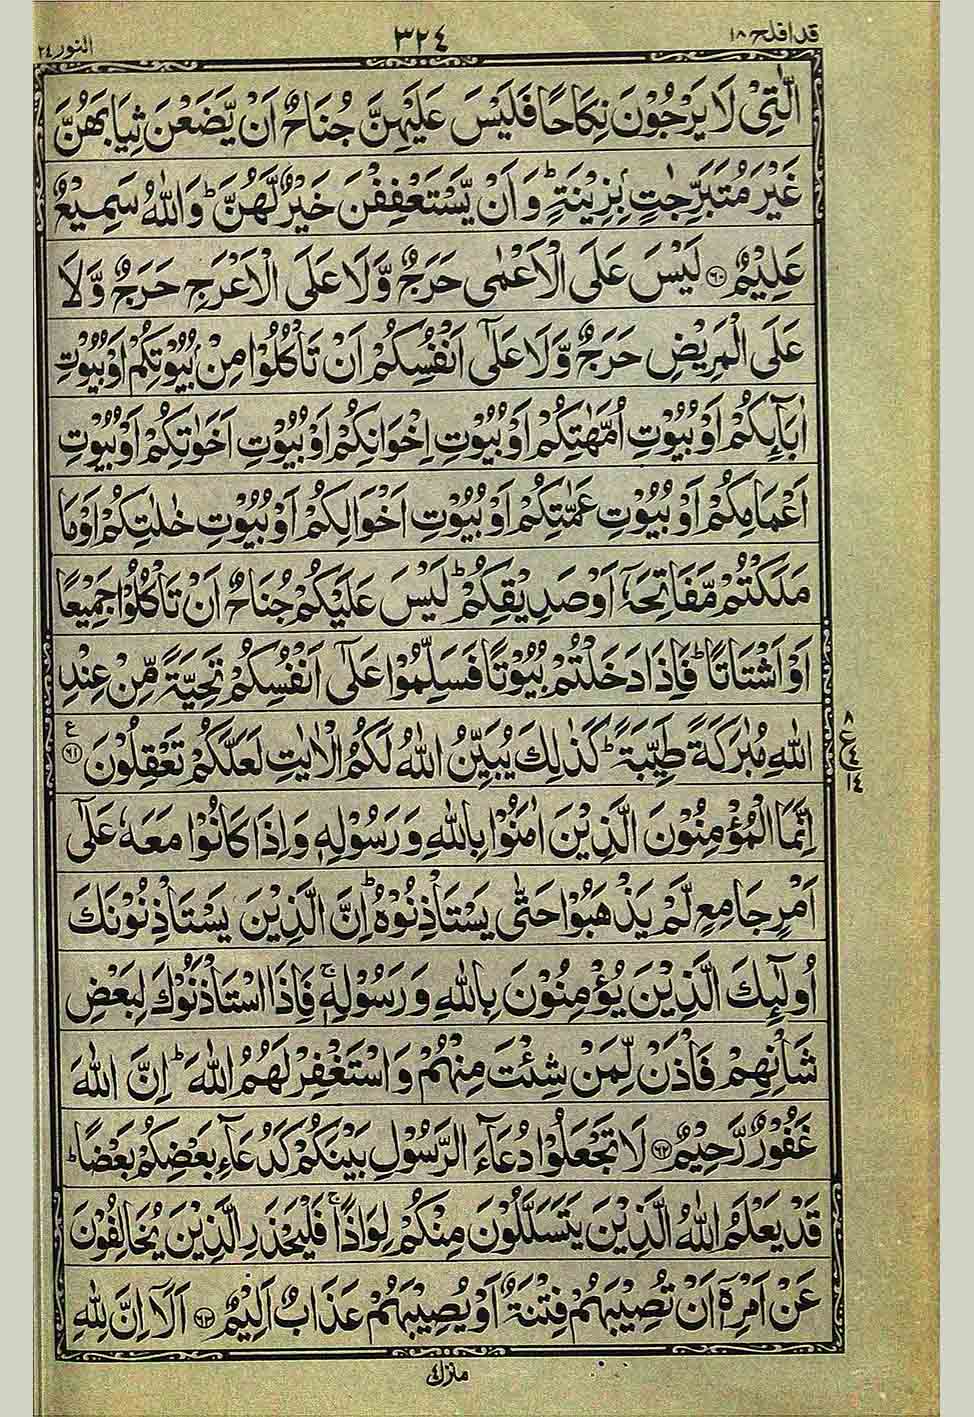 قد افلح ١٨ ٣٢٤ النور ٢٤
الّٰتِیْ لَا یَرْجُوْنَ نِكَاحًا فَلَیْسَ عَلَیْهِنَّ جُنَاحٌ اَنْ یَّضَعْنَ ثِیَابَهُنَّ
غَیْرَ مُتَبَرِّجٰتٍۭ بِزِیْنَةٍ ؕ وَ اَنْ یَّسْتَعْفِفْنَ خَیْرٌ لَّهُنَّ ؕ وَ اللّٰهُ سَمِیْعٌ
عَلِیْمٌ ﴿٦٠﴾ لَیْسَ عَلَی الْاَعْمٰی حَرَجٌ وَّ لَا عَلَی الْاَعْرَجِ حَرَجٌ وَّ لَا
عَلَی الْمَرِیْضِ حَرَجٌ وَّ لَا عَلٰۤی اَنْفُسِكُمْ اَنْ تَاْكُلُوْا مِنْۢ بُیُوْتِكُمْ اَوْ بُیُوْتِ
اٰبَآىِٕكُمْ اَوْ بُیُوْتِ اُمَّهٰتِكُمْ اَوْ بُیُوْتِ اِخْوَانِكُمْ اَوْ بُیُوْتِ اَخَوٰتِكُمْ اَوْ بُیُوْتِ
اَعْمَامِكُمْ اَوْ بُیُوْتِ عَمّٰتِكُمْ اَوْ بُیُوْتِ اَخْوَالِكُمْ اَوْ بُیُوْتِ خٰلٰتِكُمْ اَوْ مَا
مَلَكْتُمْ مَّفَاتِحَهٗۤ اَوْ صَدِیْقِكُمْ ؕ لَیْسَ عَلَیْكُمْ جُنَاحٌ اَنْ تَاْكُلُوْا جَمِیْعًا
اَوْ اَشْتَاتًا ؕ فَاِذَا دَخَلْتُمْ بُیُوْتًا فَسَلِّمُوْا عَلٰۤی اَنْفُسِكُمْ تَحِیَّةً مِّنْ عِنْدِ
اللّٰهِ مُبٰرَكَةً طَیِّبَةً ؕ كَذٰلِكَ یُبَیِّنُ اللّٰهُ لَكُمُ الْاٰیٰتِ لَعَلَّكُمْ تَعْقِلُوْنَ ﴿٦١﴾ ع
٨ ع ٤ ١٤
اِنَّمَا الْمُؤْمِنُوْنَ الَّذِیْنَ اٰمَنُوْا بِاللّٰهِ وَ رَسُوْلِهٖ وَ اِذَا كَانُوْا مَعَهٗ عَلٰۤی
اَمْرٍ جَامِعٍ لَّمْ یَذْهَبُوْا حَتّٰی یَسْتَاْذِنُوْهُ ؕ اِنَّ الَّذِیْنَ یَسْتَاْذِنُوْنَكَ
اُولٰٓىِٕكَ الَّذِیْنَ یُؤْمِنُوْنَ بِاللّٰهِ وَ رَسُوْلِهٖ ۚ فَاِذَا اسْتَاْذَنُوْكَ لِبَعْضِ
شَاْنِهِمْ فَاْذَنْ لِّمَنْ شِئْتَ مِنْهُمْ وَ اسْتَغْفِرْ لَهُمُ اللّٰهَ ؕ اِنَّ اللّٰهَ
غَفُوْرٌ رَّحِیْمٌ ﴿٦٢﴾ لَا تَجْعَلُوْا دُعَآءَ الرَّسُوْلِ بَیْنَكُمْ كَدُعَآءِ بَعْضِكُمْ بَعْضًا ؕ
قَدْ یَعْلَمُ اللّٰهُ الَّذِیْنَ یَتَسَلَّلُوْنَ مِنْكُمْ لِوَاذًا ۚ فَلْیَحْذَرِ الَّذِیْنَ یُخَالِفُوْنَ
عَنْ اَمْرِهٖۤ اَنْ تُصِیْبَهُمْ فِتْنَةٌ اَوْ یُصِیْبَهُمْ عَذَابٌ اَلِیْمٌ ﴿٦٣﴾ اَلَاۤ اِنَّ لِلّٰهِ
منزل ٤